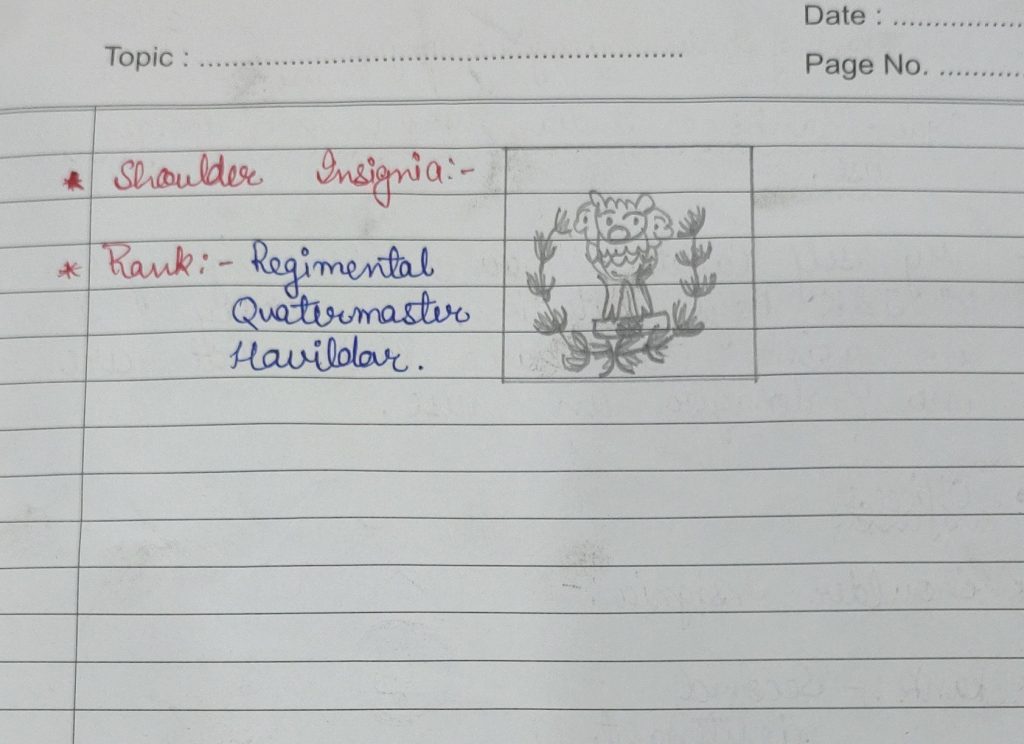 Date : ................
Topic : ................................................................
Page No. ...........
* Shoulder Insignia:-
* Rank:- Regimental
Quatermaster
Havildar.